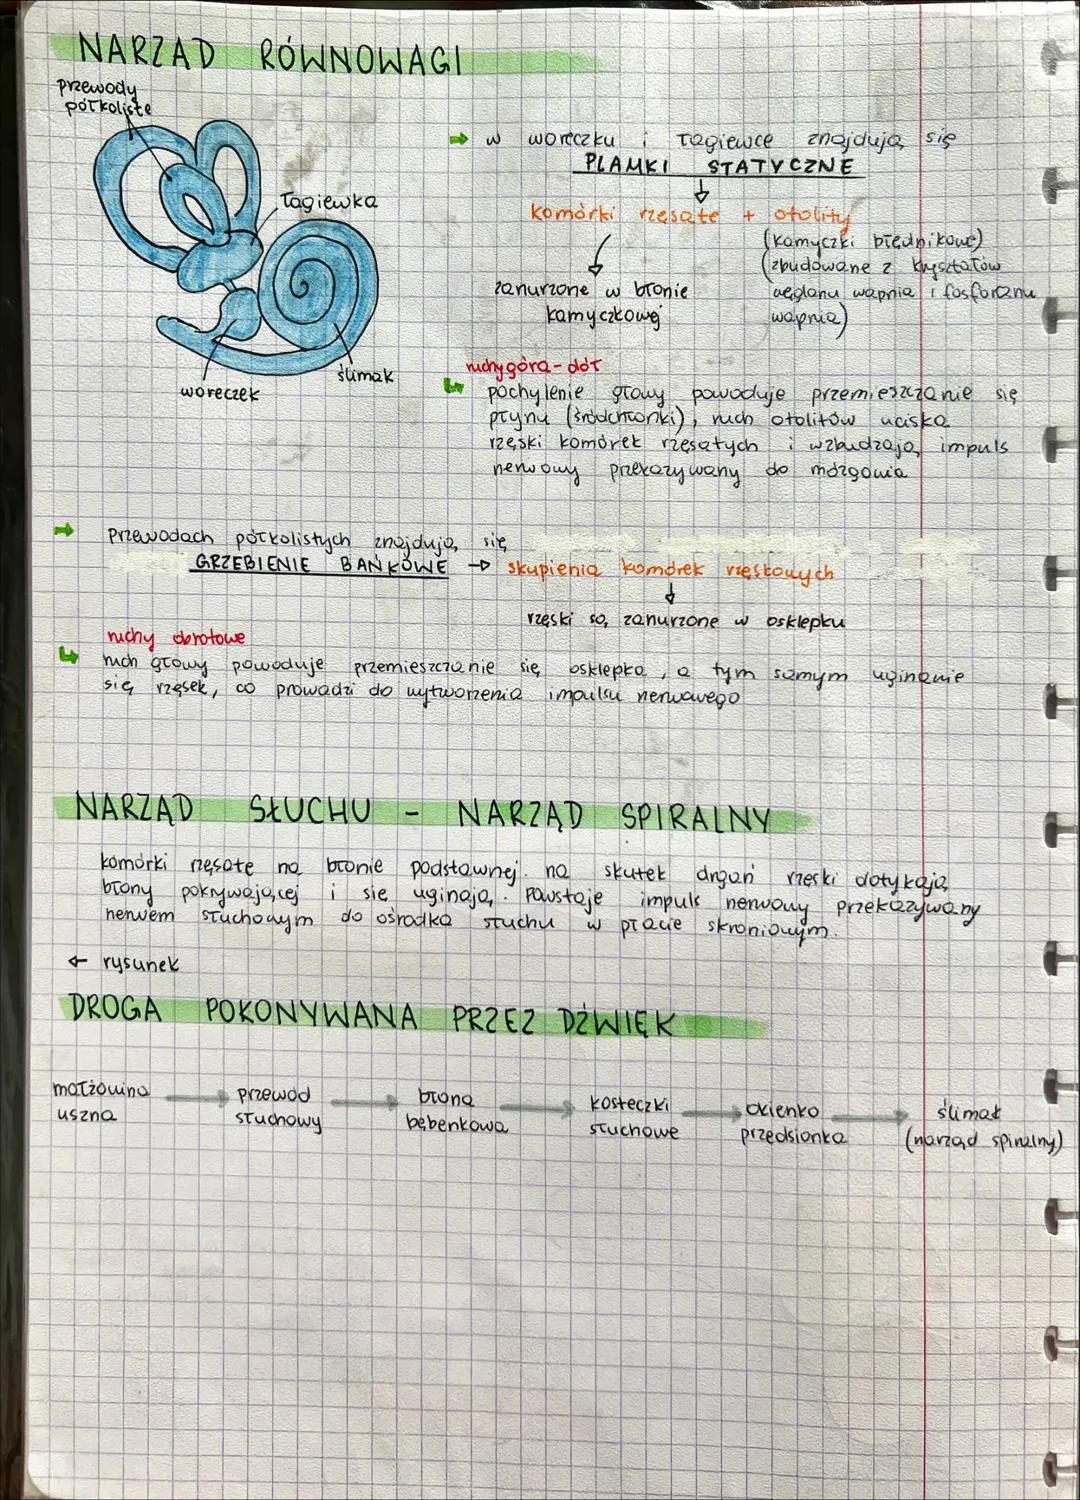 NARZĄD RÓWNOWAGI
przewody
półkoliste
łagiewka
ślimak
woreczek
w woreczku i łagiewce znajdują się
PLAMKI STATYCZNE
komórki rzęsate + otolity
(kamyczki błędnikowe)
(zbudowane z kryształów
węglanu wapnia i fosforanu
wapnia)
zanurzone w błonie
kamyczkowej
ruchy góra - dół
pochylenie głowy powoduje przemieszczanie się
płynu (śródchłonki), ruch otolitów uciska
rzęski komórek rzęsatych i wzbudzają impuls
nerwowy przekazywany do mózgowia
Przewodach półkolistych znajdują się
GRZEBIENIE BAŃKOWE → skupienia komórek rzęskowych
rzęski są zanurzone w osklepku
ruchy obrotowe
ruch głowy powoduje przemieszczanie się osklepka, a tym samym uginanie
się rzęsek, co prowadzi do wytworzenia impulsu nerwowego
NARZĄD SŁUCHU - NARZĄD SPIRALNY
komórki rzęsate na błonie podstawnej. na skutek drgań rzęski dotykają
błony pokrywającej i się uginają. Powstaje impuls nerwowy przekazywany
nerwem słuchowym do ośrodka słuchu w płacie skroniowym.
← rysunek
DROGA POKONYWANA PRZEZ DŹWIĘK
małżowina uszna → przewód słuchowy → błona bębenkowa → kosteczki słuchowe → okienko przedsionka → ślimak (narząd spiralny)